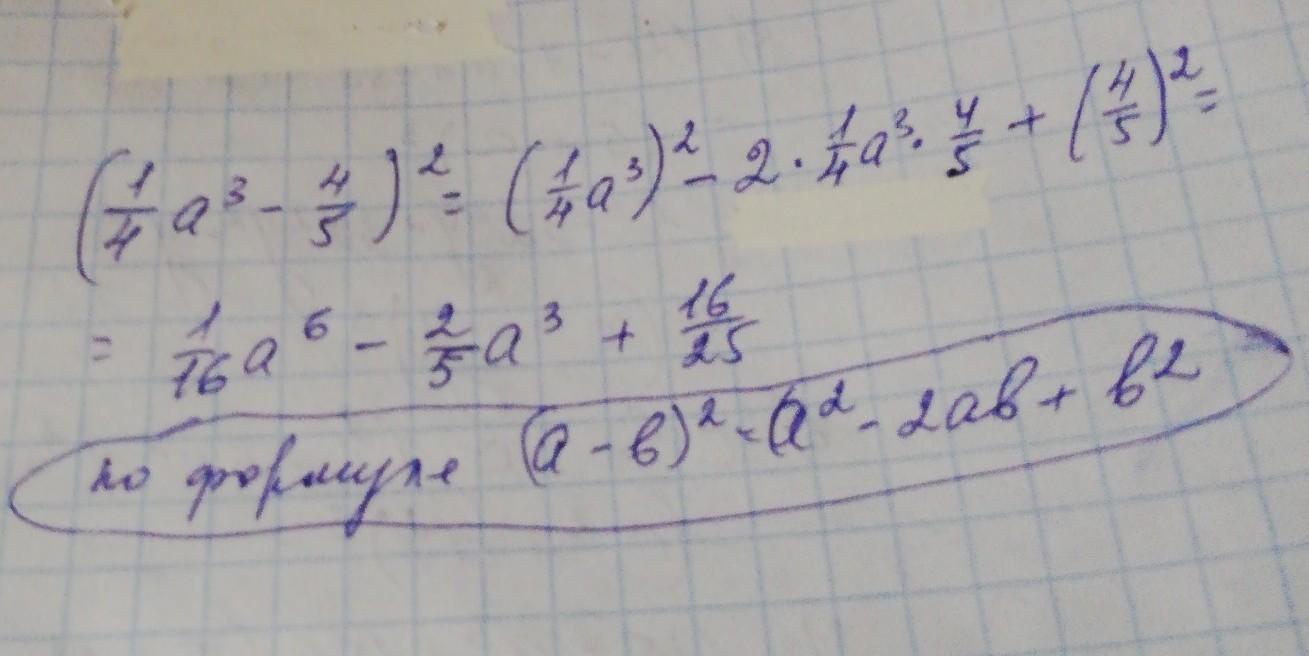 (1/4 a³ - 4/5)² = (1/4 a³)² - 2 · 1/4 a³ · 4/5 + (4/5)² =
= 1/16 a⁶ - 2/5 a³ + 16/25
по формуле (а - в)² = а² - 2ав + в²